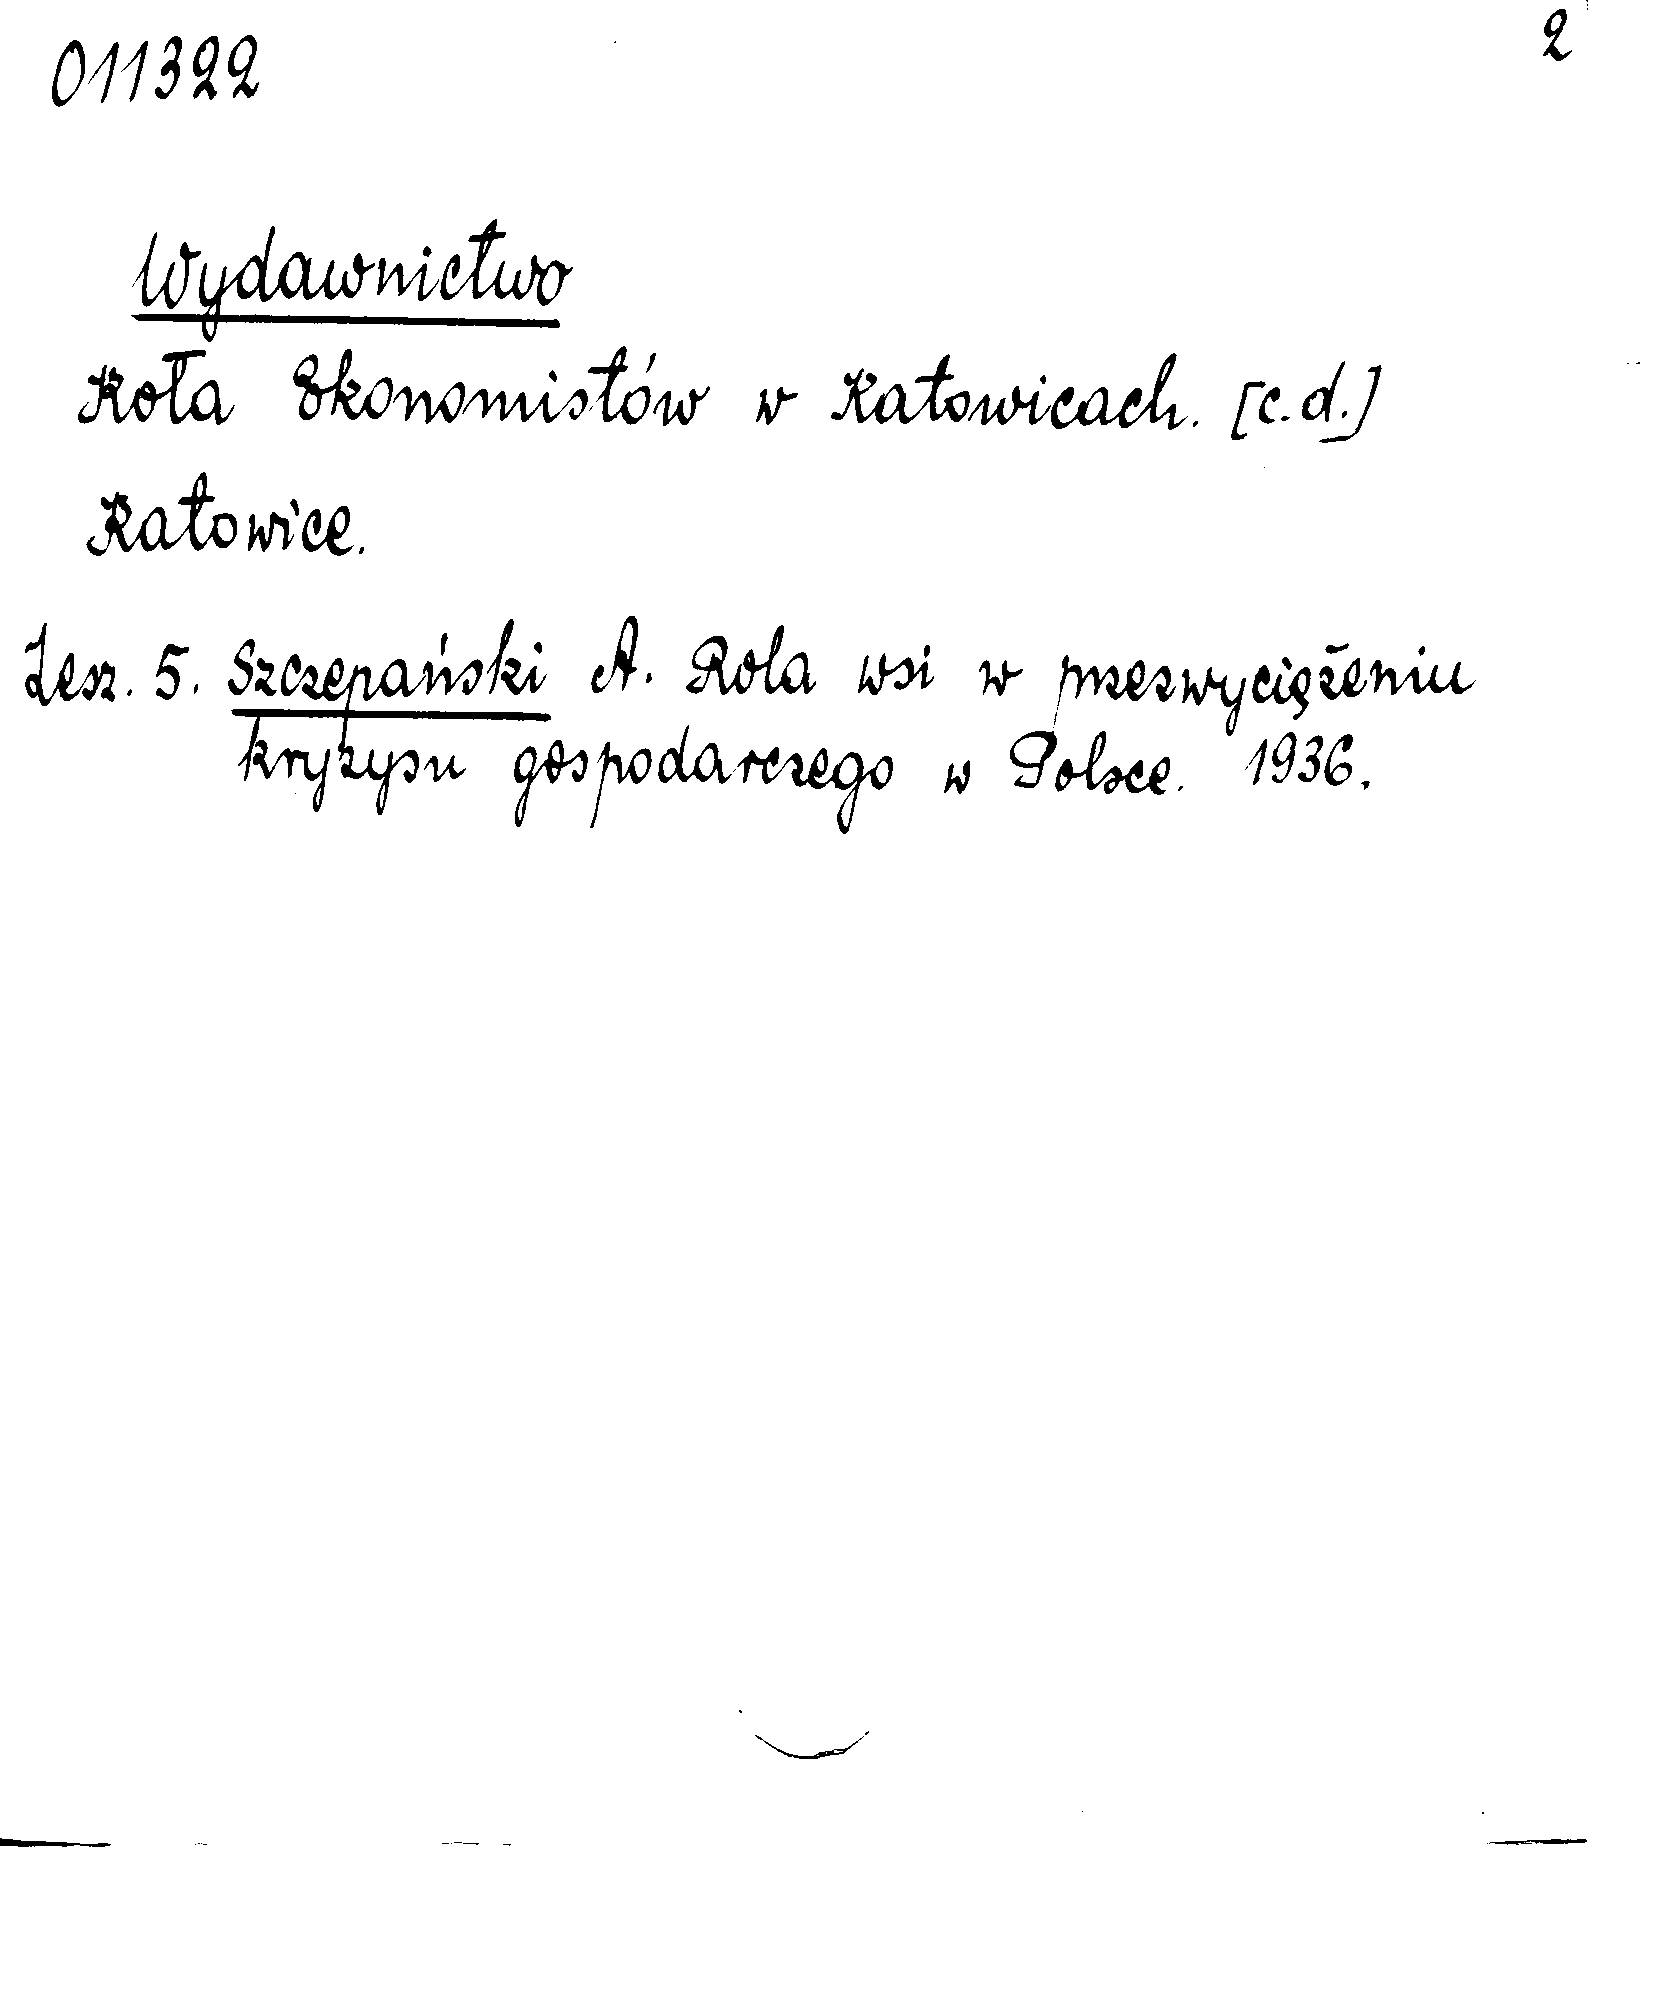 011322
2
Wydawnictwo
Koła Ekonomistów w Katowicach. [c.d.]
Katowice.
Zesz. 5. Szczepański A. Rola wsi w przezwyciężeniu
kryzysu gospodarczego w Polsce. 1936.